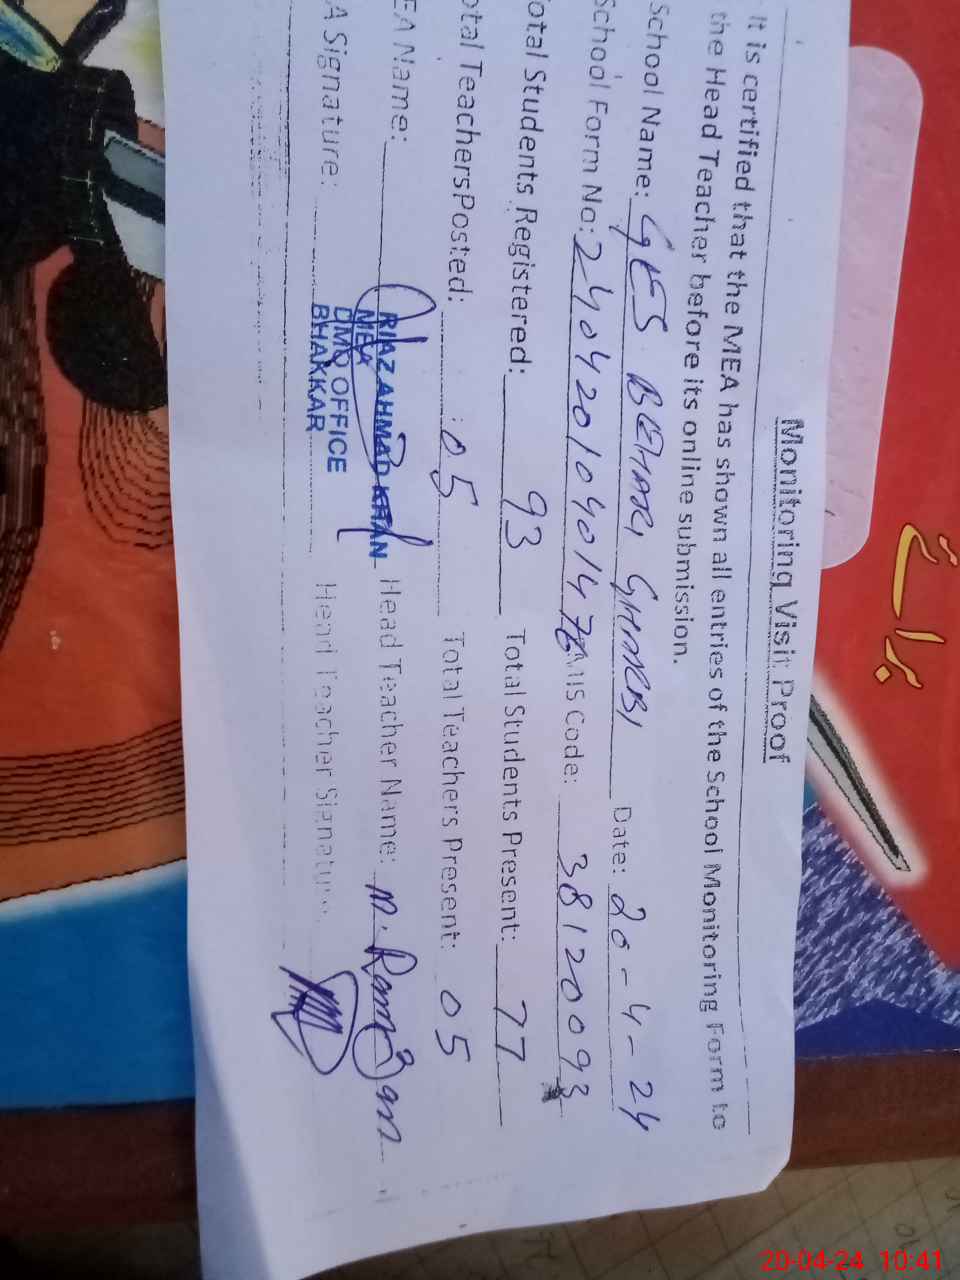 Monitoring Visit Proof
It is certified that the MEA has shown all entries of the School Monitoring Form to
the Head Teacher before its online submission.
School Name: GES BEHARI GHARBI Date: 20-4-24
School Form No: 240420104014 EMIS Code: 38120093
Total Students Registered: 93 Total Students Present: 77
otal TeachersPosted: 05 Total Teachers Present: 05
EA Name: RIAZ AHMAD KHAN Head Teacher Name: M. Ramzan
MEA
DMO OFFICE
BHAKKAR
A Signature: Head Teacher Signature
برائے
20-04-24 10:41